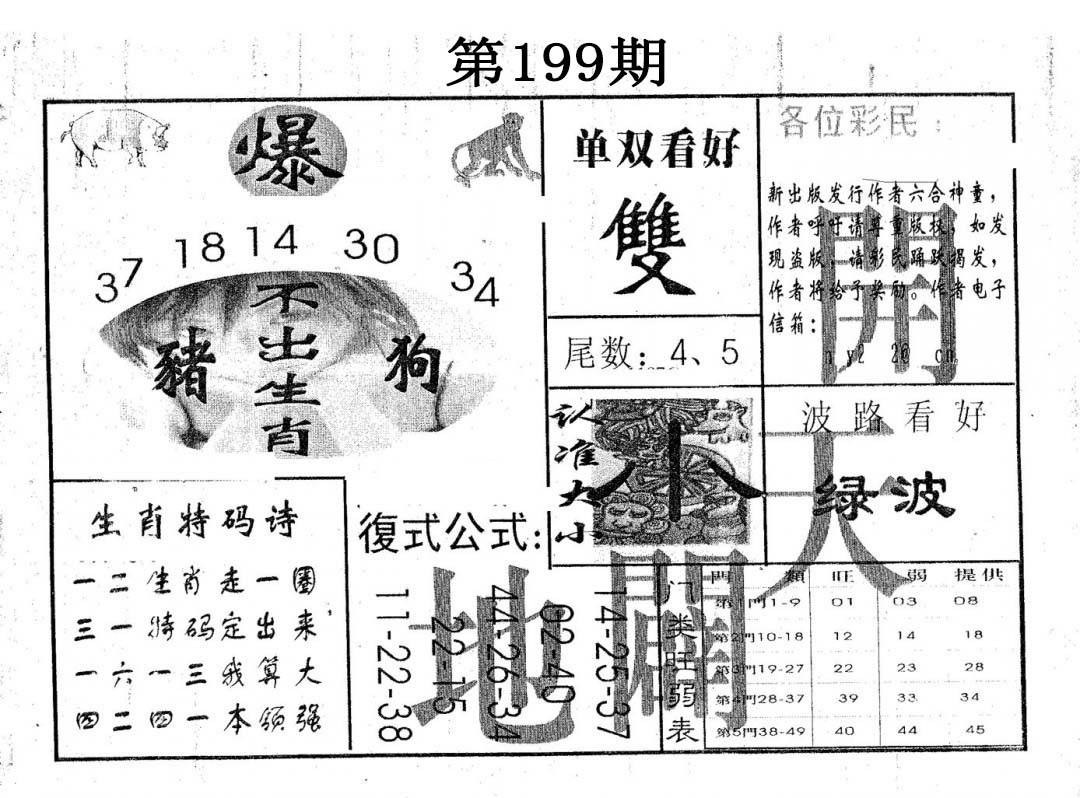 第199期
爆
37 18 14 30 34
不出生肖
豬
狗
单双看好
雙
尾数：4、5
各位彩民：
新出版发行作者六合神童，
作者呼吁请尊重版权，如发
现盗版，请彩民踊跃揭发，
作者将给予奖励。作者电子
信箱：
開
天
地
闢
认准大小
小
波路看好
绿波
生肖特码诗
一二生肖走一圈
三一特码定出来，
一六一三我算大
四二四一本领强
復式公式：
11-22-38
22-15
44-26-34
02-40
14-25-37
门类旺弱表
門類 旺 弱 提供
第1門1-9 01 03 08
第2門10-18 12 14 18
第3門19-27 22 23 28
第4門28-37 39 33 34
第5門38-49 40 44 45